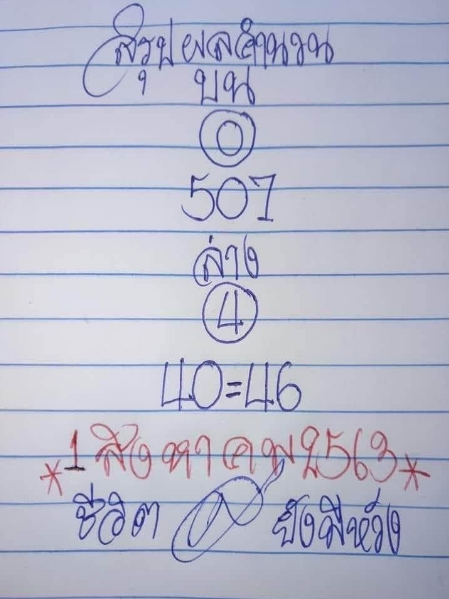 สรุปผลคำนวน
บน
0
507
ล่าง
4
40=46
*1 สิงหาคม 2563*
ชีวิต ยังมีหวัง